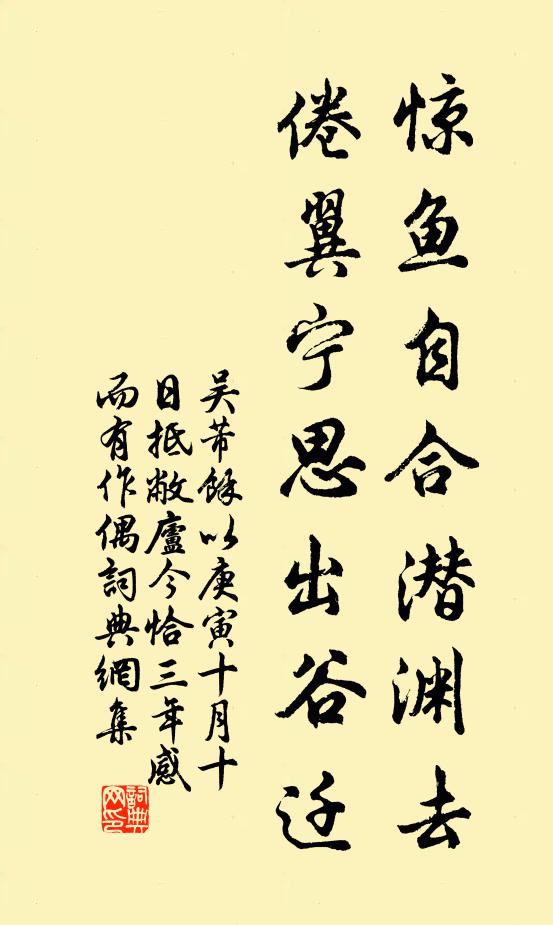 惊鱼自合潜渊去
倦翼宁思出谷迁
吴芾馀以庚寅十月十
日抵敝廬今恰三年感
而有作偶詞典網集
詞典
网印